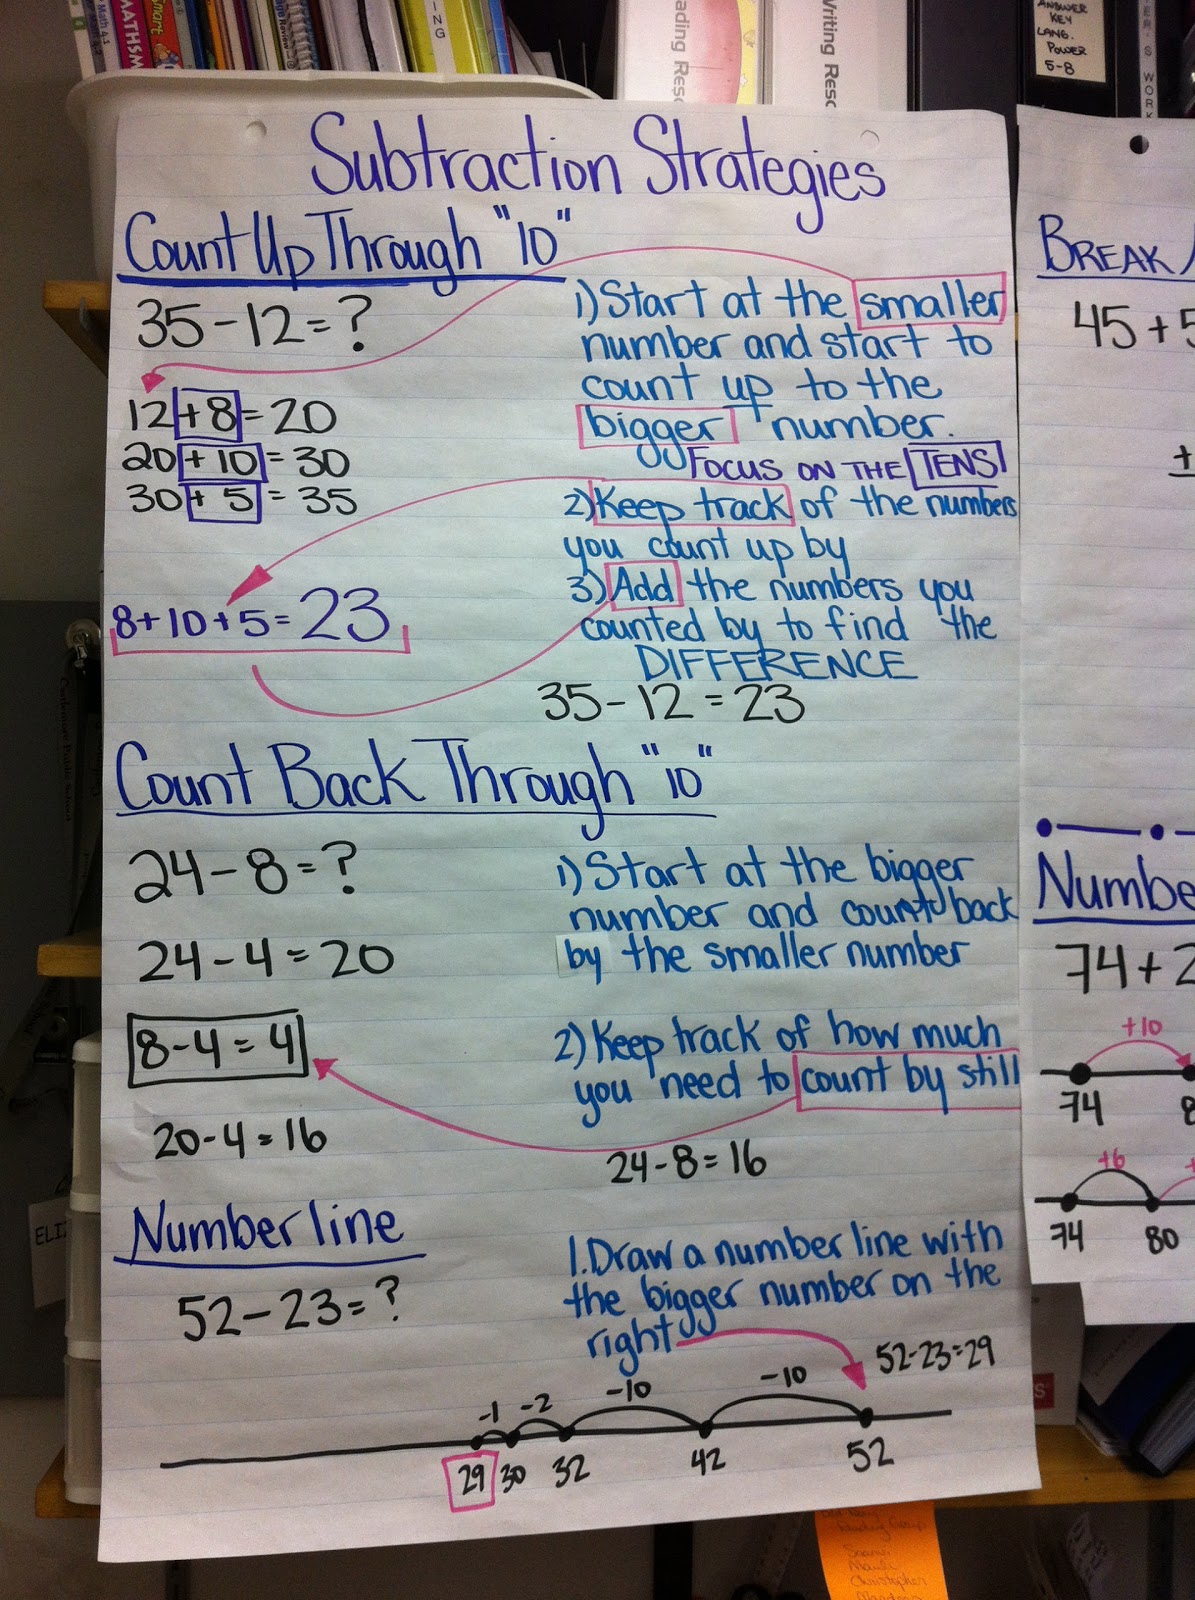 MATHSM
Smart
ING
ading Resc
Writing Resc
ANSWER
KEY
LANG.
POWER
5-8
WORK
Subtraction Strategies
Count Up Through "10"
35-12=?
12+8=20
20+10=30
30+5=35
8+10+5=23
1) Start at the smaller
number and start to
count up to the
bigger number.
FOCUS ON THE TENS
2) Keep track of the numbers
you count up by
3) Add the numbers you
counted by to find the
DIFFERENCE
35-12=23
Count Back Through "10"
24-8=?
24-4=20
8-4=4
20-4=16
1) Start at the bigger
number and count back
by the smaller number
2) Keep track of how much
you need to count by still
24-8=16
Number line
52-23=?
1. Draw a number line with
the bigger number on the
right
52-23=29
-1 -2 -10 -10
29 30 32 42 52
BREAK
45+5
+
Numbe
74+2
+10
74 8
+6 +
74 80
ELIZ
Christopher